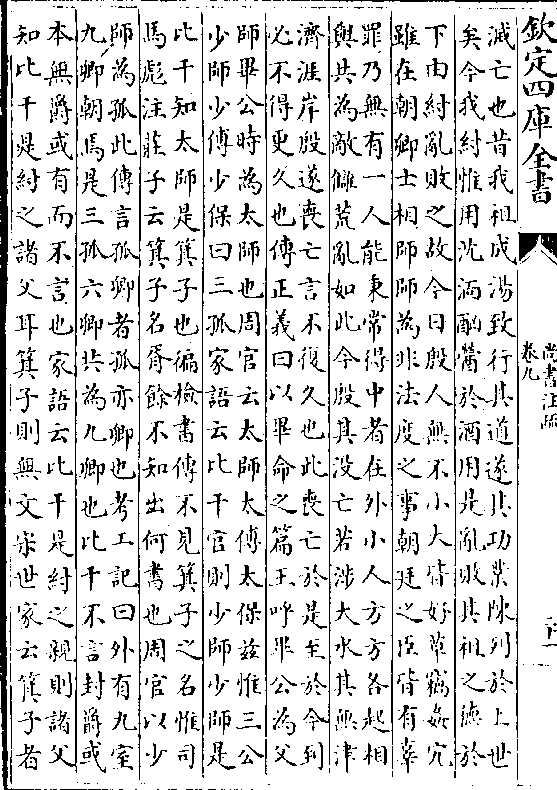 欽定四庫全書
尚書注疏
卷九
滅亡也昔我祖成湯致行其道遂其功業陳列於上世
矣今我紂惟用沈湎酗醟於酒用是亂敗其祖之德於
下由紂亂敗之故今日殷人無不小大皆好草竊姦宄
雖在朝卿士相師師為非法度之事朝廷之臣皆有辜
罪乃無有一人能秉常得中者在外小人方方各起相
與共為敵讎荒亂如此今殷其没亡若涉大水其無津
濟涯岸殷遂喪亡言不復久也此喪亡於是至於今到
必不得更久也傳正義曰以畢命之篇王呼畢公為父
師畢公時為太師也周官云太師太傅太保兹惟三公
少師少傅少保曰三孤家語云比干官則少師少師是
比干知太師是箕子也徧檢書傳不見箕子之名惟司
馬彪注莊子云箕子名胥餘不知出何書也周官以少
師為孤此傳言孤卿者孤亦卿也考工記曰外有九室
九卿朝焉是三孤六卿共為九卿也比干不言封爵或
本無爵或有而不言也家語云比干是紂之親則諸父
知比干是紂之諸父耳箕子則無文宋世家云箕子者